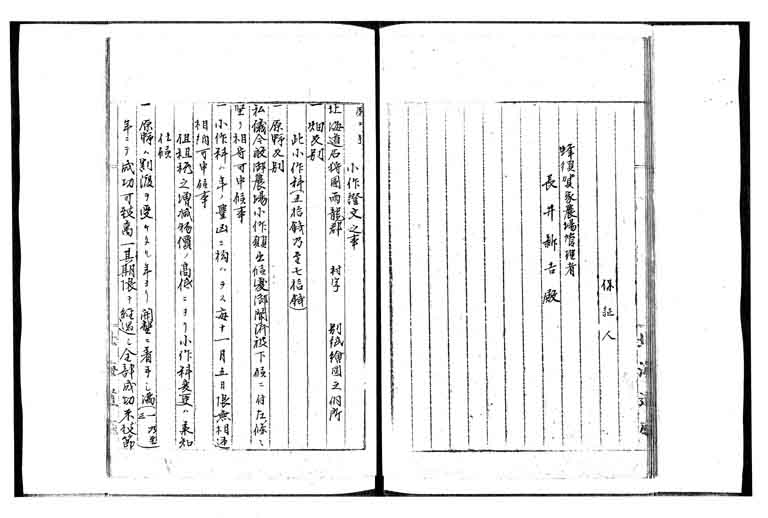 保証人
蜂須賀家農場管理者
長井新吉殿
小作證文之事
北海道石狩國雨龍郡 村字 別紙繪圖之個所
一畑反別
此小作料(五拾銭乃至七拾銭)
一原野反別
私儀今般御農場小作願出候處御聞済被下候ニ付左條々
堅ク相守可申候事
一小作料ハ年ノ豊凶ニ拘ハラス毎十一月五日限無相違
相納可申候事
但租税之増減物價ノ高低ニヨリ小作料変更ハ承知
仕候
一原野ハ割渡ヲ受ケタル年ヨリ開墾ニ着手シ満(一乃至三)
年ニテ成功可致萬一其期限ヲ経過シ全部成功不致節
北海道